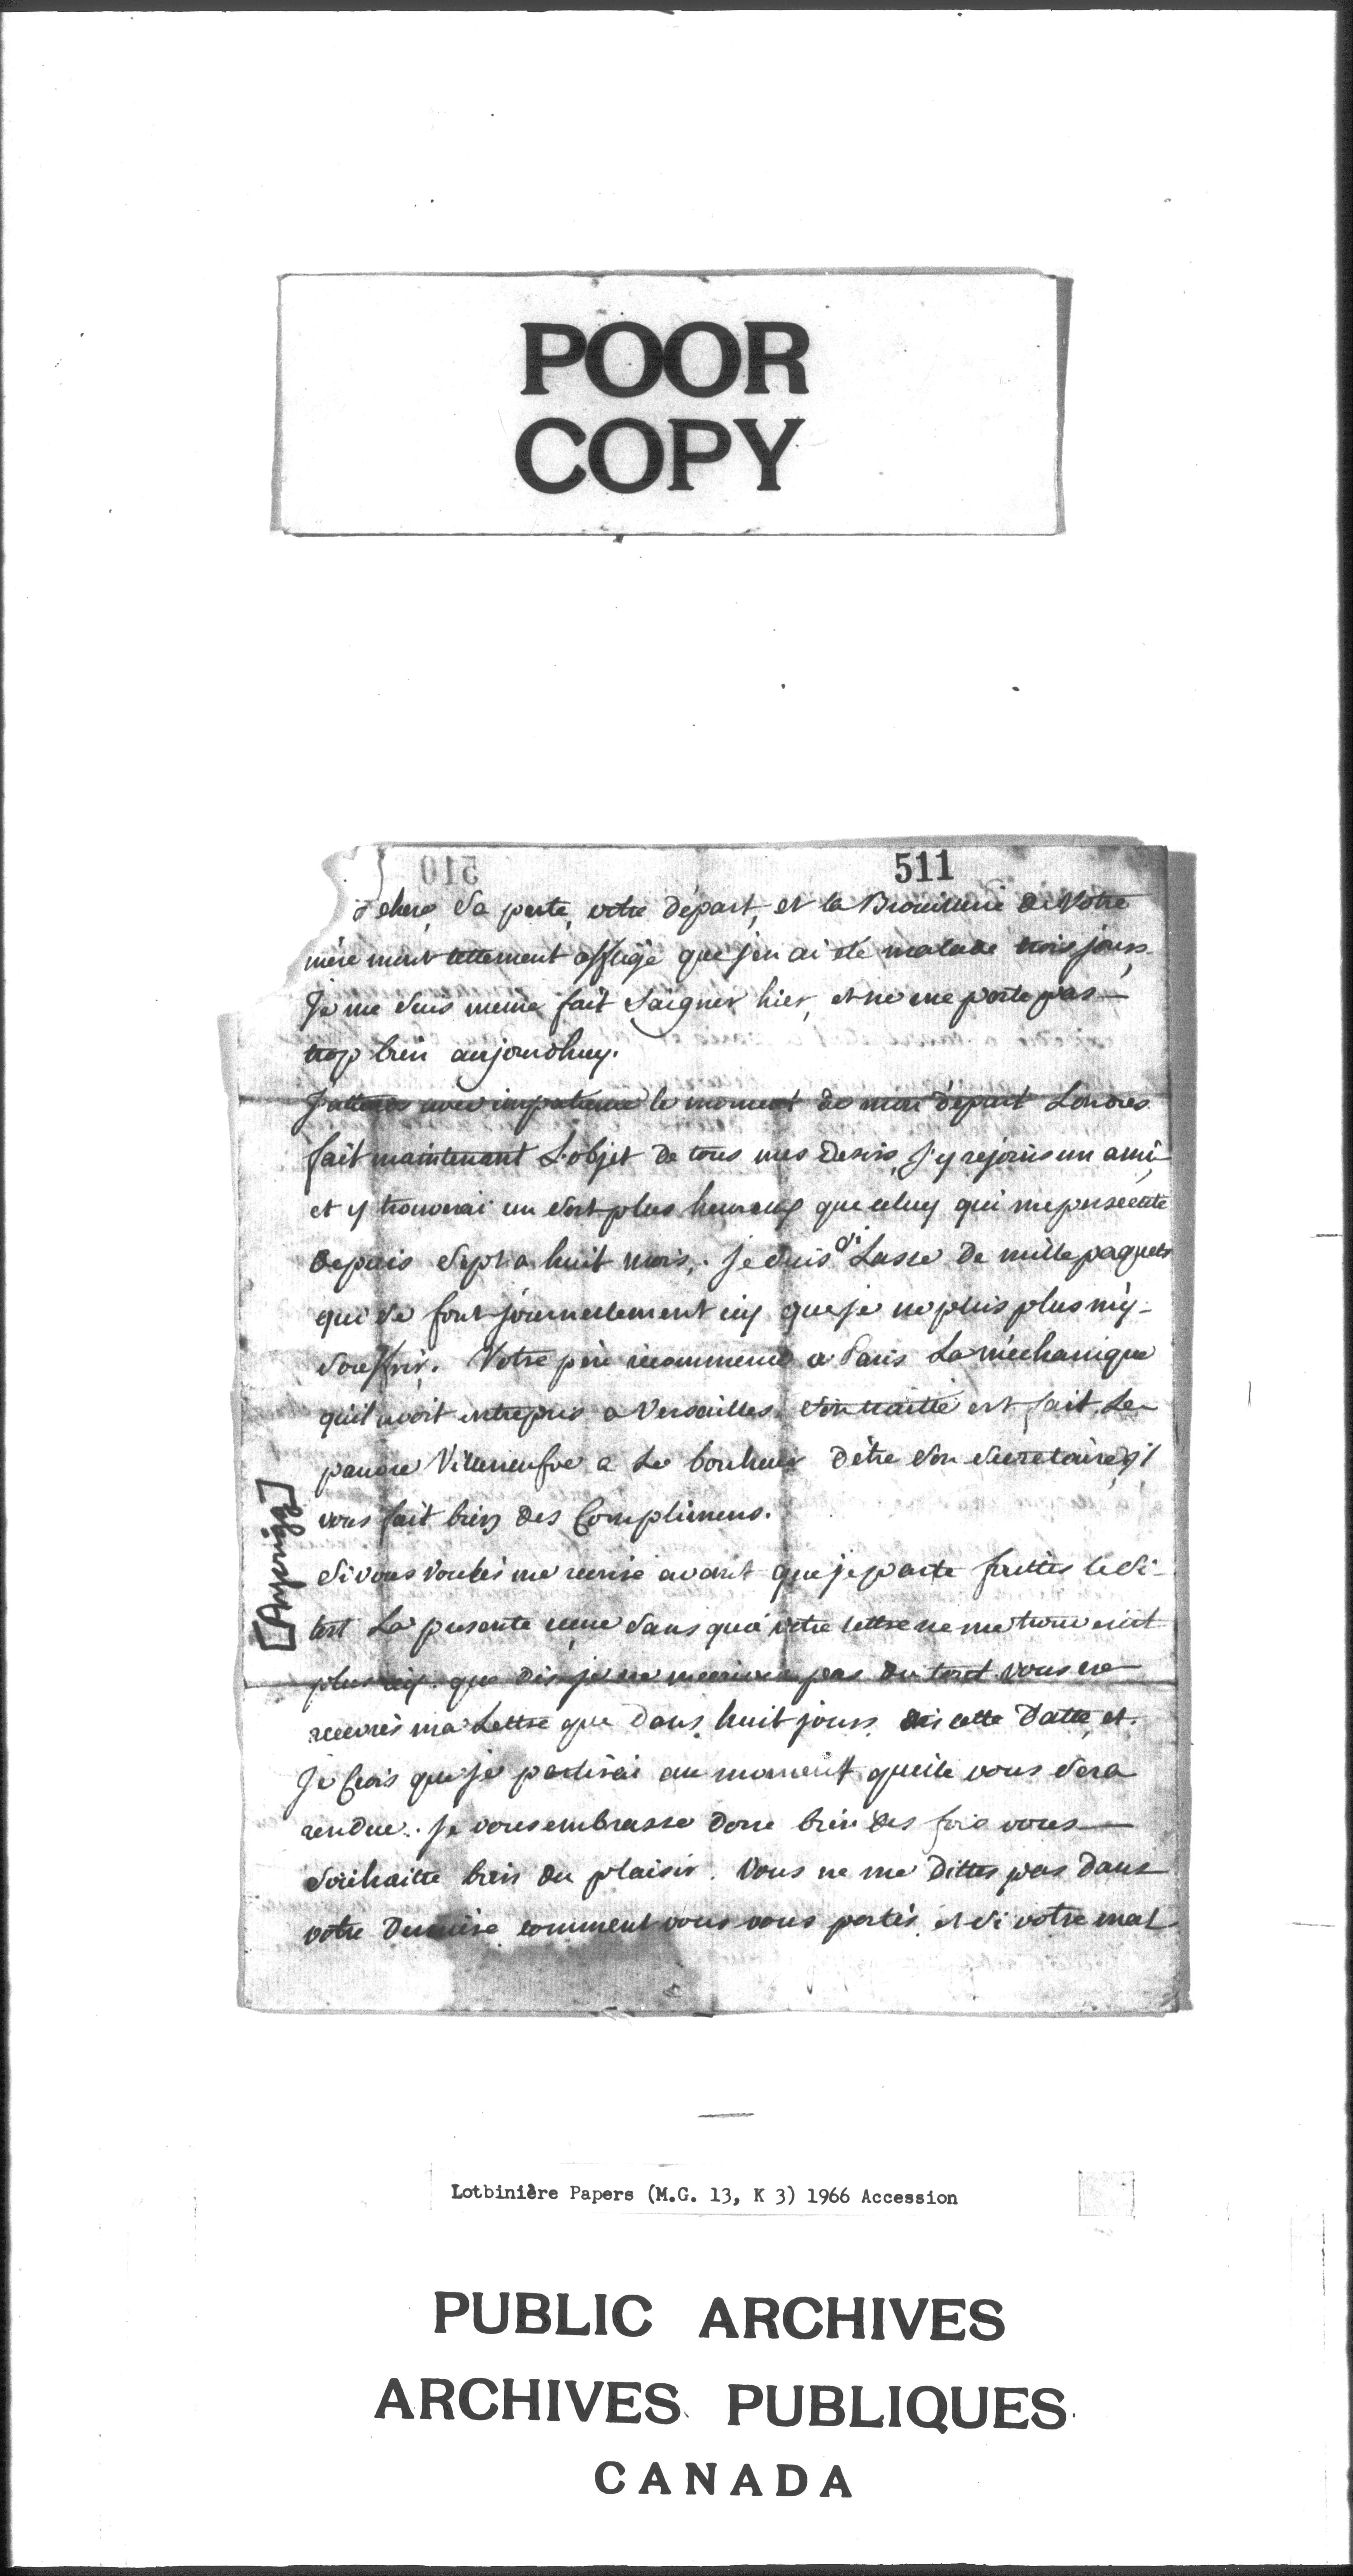 POOR
COPY
510
511
chere sa perte, votre départ, et la Brouillerie de Votre
mère mont tellement affligé que j'en ai été malade trois jours.
Je me suis meme fait saigner hier, et ne me porte pas
trop bien aujourdhuy.
J'attends avec impatience le moment de mon départ Londres
fait maintenant L'objet de tous mes desirs, J'y rejoins un ami
et y trouverai un sort plus heureux que celuy qui me persecute
depuis sept a huit mois,. je suis si Lasse de mille paquets
qui se font journellement icy que je ne puis plus m'y
souffrir. Votre père recommence a Paris La méchanique
qu'il avoit entrepris a Versailles. Son traitté est fait. Le
pauvre Villeneufve a Le bonheur d'être son secretaire, il
vous fait bien des Complimens.
[Anjorigg]
Si vous voulés me ecrire avant que je parte faittes le si
tost La presente reçue sans quoi votre lettre ne me trouveroit
plus icy. que dis-je ne mecrivés pas du tout vous ne
recevrés ma Lettre que dans huit jours dès cette Datte, et
Je Crois que je partirai au moment quelle vous sera
rendue. Je vous embrasse donc bien des fois vous
souhaitte bien du plaisir. Vous ne me dittes pas dans
votre derniere comment vous vous portés, et si votre mal
Lotbinière Papers (M.G. 13, K 3) 1966 Accession
PUBLIC ARCHIVES
ARCHIVES PUBLIQUES
CANADA